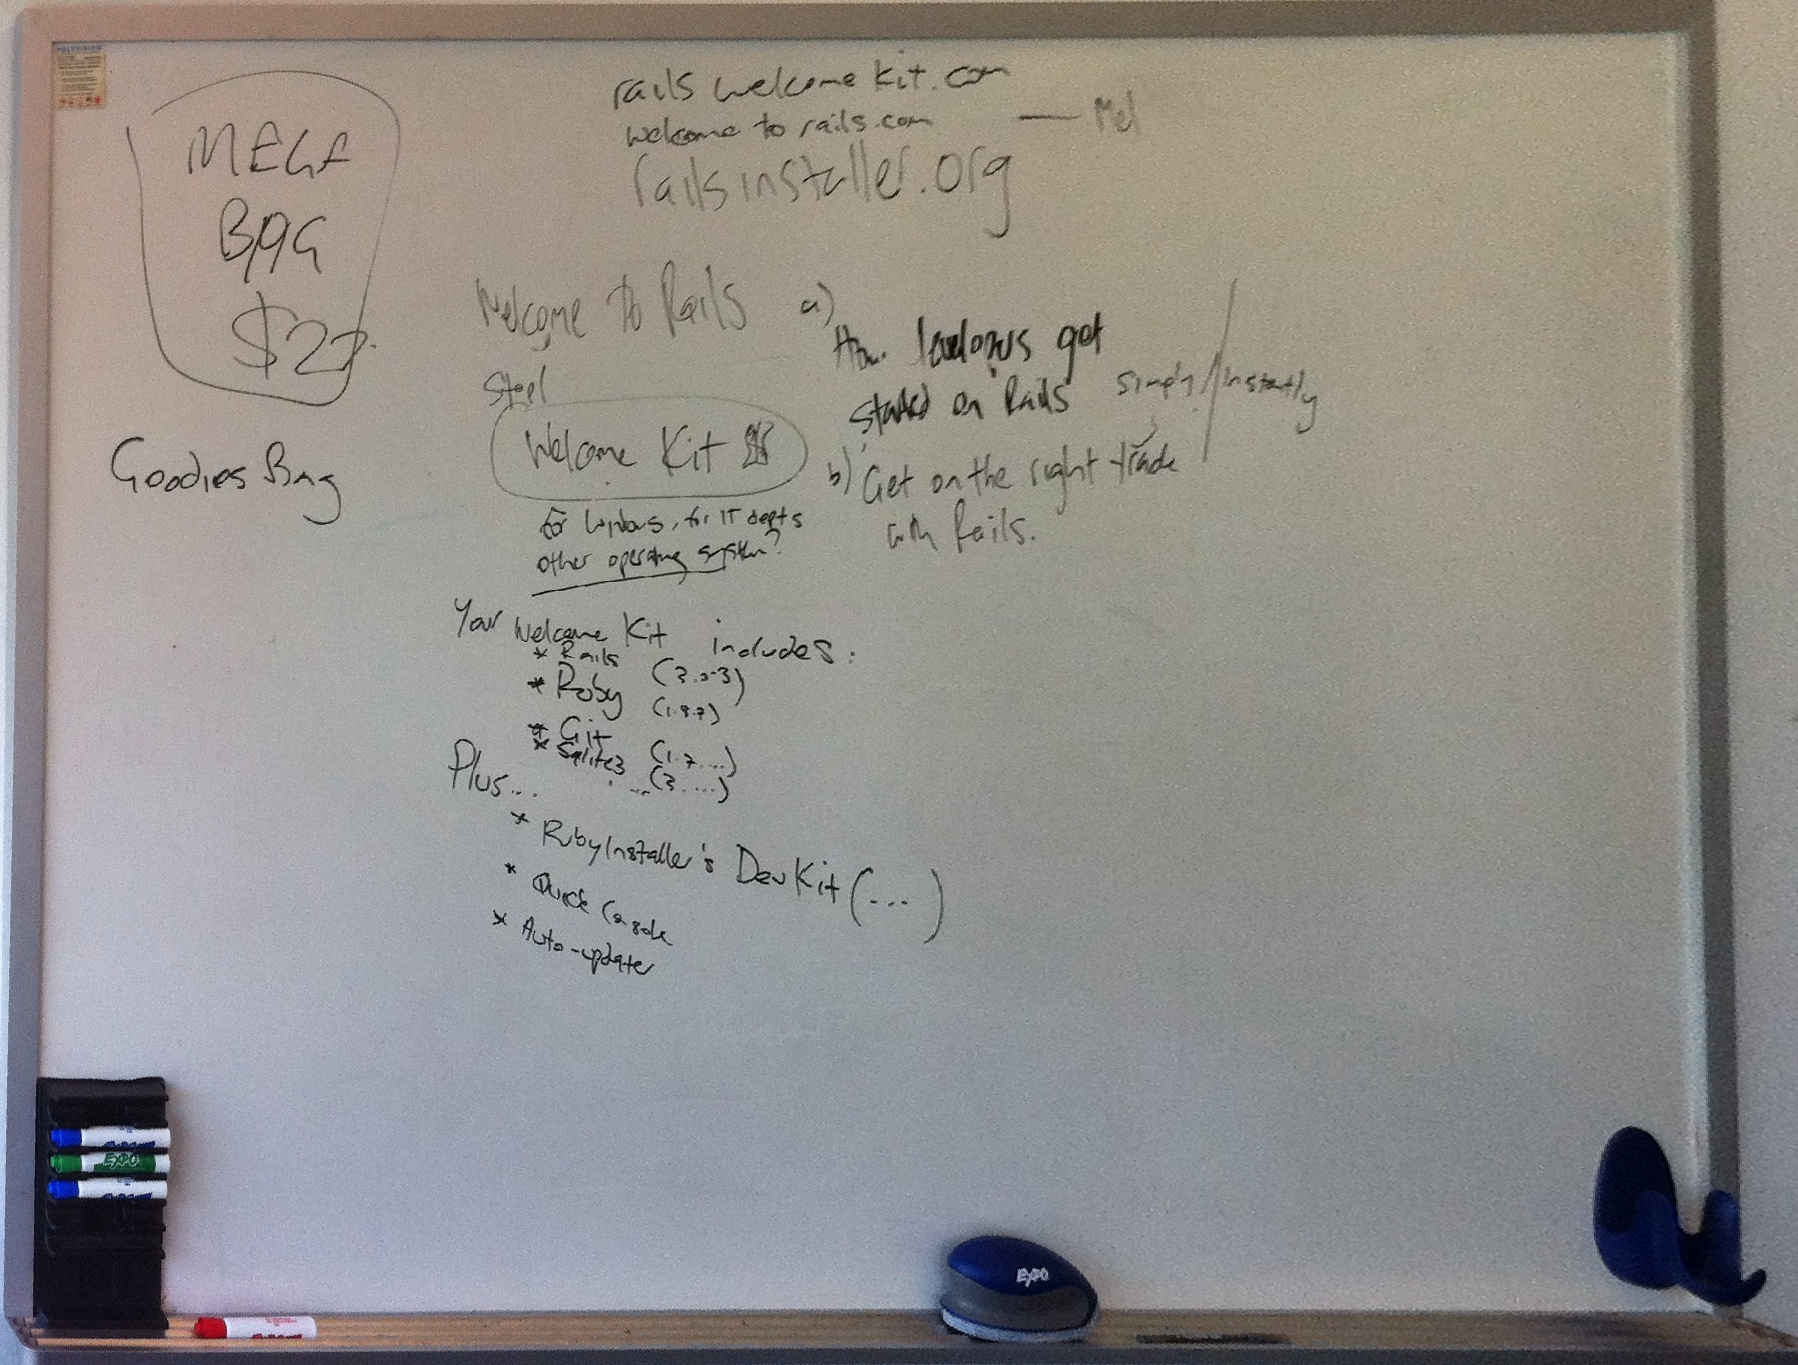 MEGA
BAG
$27
Goodies Bag
rails welcome kit.com
welcome to rails.com — Mel
railsinstaller.org
Welcome to Rails
Step 1
Welcome Kit
for Windows, for IT depts
other operating system?
a)
How developers get
started on Rails simply/instantly
b) Get on the right
with Rails.
Your Welcome Kit includes:
* Rails (3.0.3)
* Ruby (1.8.7)
* Git (1.7....)
* Sqlite3 (3.....)
Plus...
* RubyInstaller's DevKit (...)
* Quick Console
* Auto-updater
EXPO
EXPO